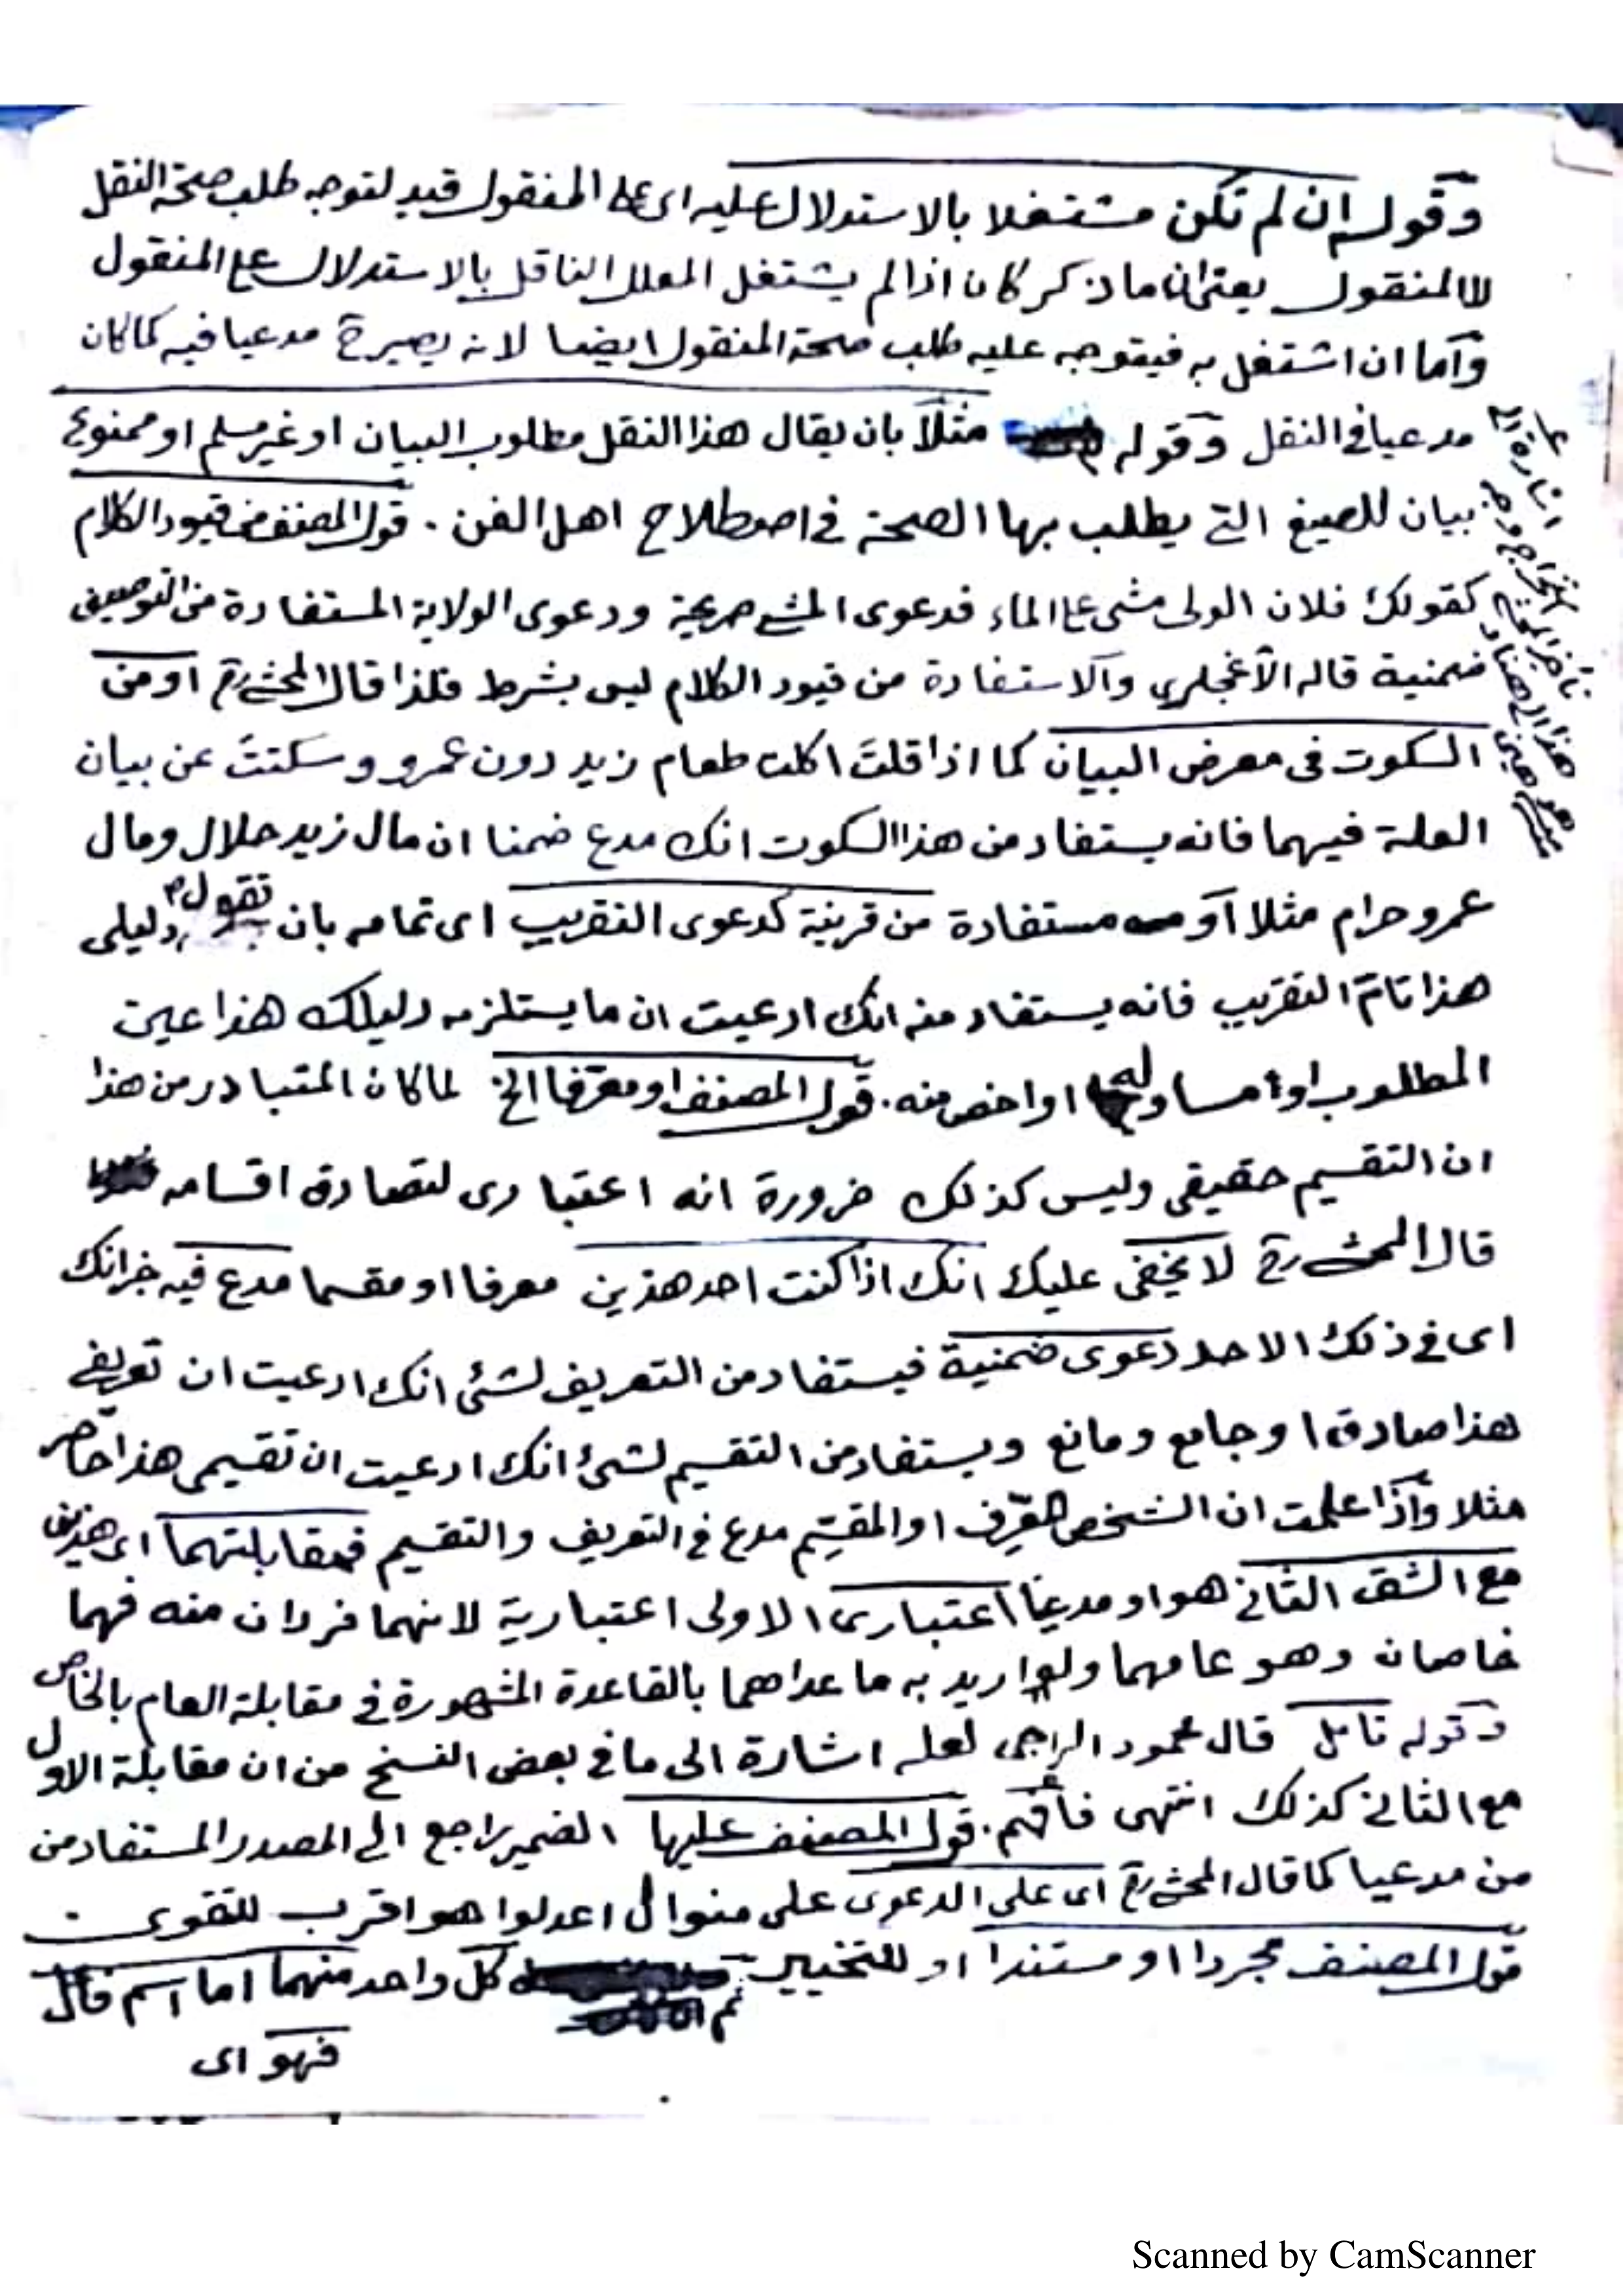 وقوله ان لم تكن مشتغلا بالاستدلال عليه اى على المنقول قيد لتوجه طلب صحة النقل
لا المنقول يعنى ان ما ذكر كان اذا لم يشتغل المعلل الناقل بالاستدلال على المنقول
وآما ان اشتغل به فيتوجه عليه طلب صحة المنقول ايضا لانه يصير ح مدعيا فيه كما كان
مدعيا فى النقل وقوله مثلاً بان يقال هذا النقل مطلوب البيان او غير مسلم او ممنوع
بيان للصيغ التى يطلب بها الصحة فى اصطلاح اهل الفن . قول المصنف من قيود الكلام
كقولك فلان الولى مشى على الماء فدعوى المشى صريحة ودعوى الولاية المستفادة من التوصيف
ضمنية قاله الآغجلرى وآلاستفادة من قيود الكلام ليس بشرط فلذا قال المحشى رح او من
السكوت فى معرض البيان كما اذا قلتَ اكلت طعام زيد دون عمرو وسكتتَ عن بيان
العلة فيهما فانه يستفاد من هذا السكوت انك مدع ضمنا ان مال زيد حلال ومال
عمرو حرام مثلا آو مستفادة من قرينة كدعوى التقريب اى تمامه بان تقول دليلى
هذا تامّ التقريب فانه يستفاد منه انك ادعيت ان ما يستلزمه دليلك هذا عين
المطلوب او مساو له او اخص منه . قول المصنف او معرّفا الخ لما كان المتبادر من هذا
ان التقسيم حقيقى وليس كذلك ضرورة انه اعتبارى لتصادق اقسامه
قال المحشى رح لا يخفى عليك انك اذا كنت احد هذين معرفا او مقسما مدع فيه خبر انك
اى فى ذلك الاحد دعوى ضمنية فيستفاد من التعريف لشئ انك ادعيت ان تعريفى
هذا صادق او جامع ومانع ويستفاد من التقسيم لشئ انك ادعيت ان تقسيمى هذا حاصر
مثلا وآذا علمت ان الشخص المعّرِف او المقسِّم مدع فى التعريف والتقسيم فمقابلتهما اى هذين
مع الشق الثانى هو او مدعيًا اعتبارى الاولى اعتبارية لانهما فردان منه فهما
خاصان وهو عامهما ولعل اريد به ما عداهما بالقاعدة المشهورة فى مقابلة العام بالخاص
وقوله تامل قال محمود الراجى لعله اشارة الى ما فى بعض النسخ من ان مقابلة الاول
مع الثانى كذلك انتهى فأفهم . قول المصنف عليها الضمير راجع الى المصدر المستفاد من
من مدعيا كما قال المحشى رح اى على الدعوى على منوال اعدلوا هو اقرب للتقوى
قول المصنف مجردا او مستندا او للتخيير ثم كل واحد منهما اما اسم فاعل
فهو اى
Scanned by CamScanner